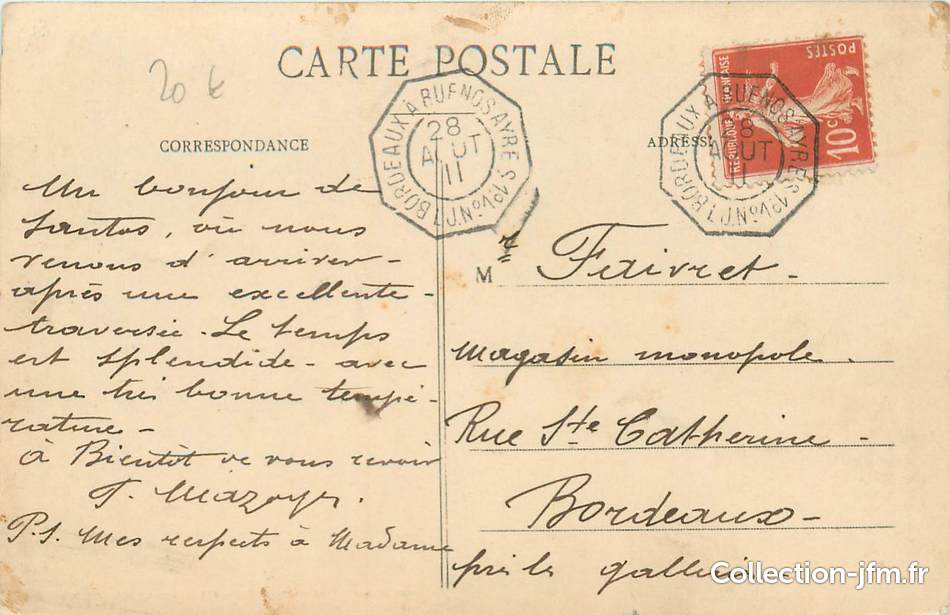 CARTE POSTALE
20 €
CORRESPONDANCE
Un bonjour de
Santos, où nous
venons d'arriver
après une excellente
traversée. Le temps
est splendide - avec
une très bonne tempé-
rature -
à Bientôt de vous revoir
P.S. Mes respects à Madame
BORDEAUX À BUENOS AYRES
28
AOUT
11
L.J. Nº 1
ADRESSE
BORDEAUX À BUENOS AYRES
28
AOUT
11
L.J. Nº 1
REPUBLIQUE FRANÇAISE
POSTES
10c
Mr Faivret -
Magasin monopole.
Rue Ste Catherine -
Bordeaux -
près la gallerie
Collection-jfm.fr